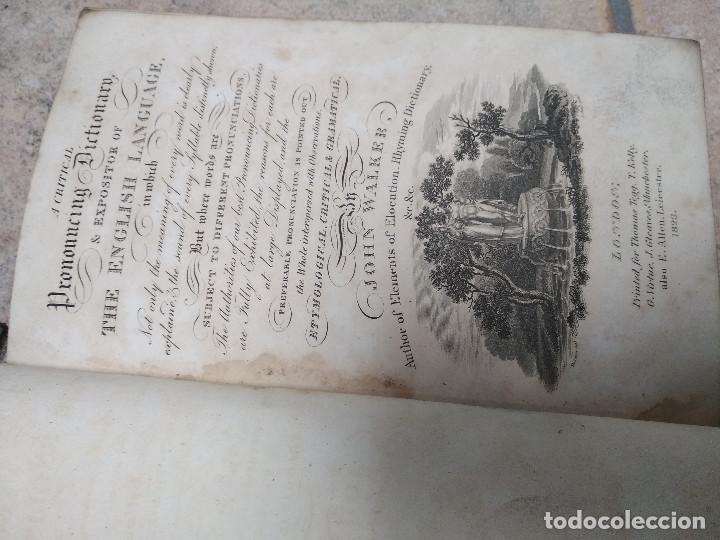 A CRITICAL
Pronouncing Dictionary,
& EXPOSITOR OF
THE ENGLISH LANGUAGE,
in which
Not only the meaning of every word is clearly
explained & the sound of every Syllable distinctly shown,
But where words are
SUBJECT TO DIFFERENT PRONUNCIATIONS,
The Authorities of our best Pronouncing Dictionaries
are Fully Exhibited, the reasons for each are
at large Displayed, and the
PREFERABLE PRONUNCIATION IS POINTED OUT
the Whole interspersed with Observations,
ETYMOLOGICAL, CRITICAL & GRAMATICAL,
By
JOHN WALKER,
Author of Elements of Elocution, Rhyming Dictionary,
&c. &c.
LONDON,
Printed for Thomas Tegg, T. Kelly,
G. Virtue, J. Gleave, Manchester,
also E. Allen Leicester.
1828.
todocoleccion